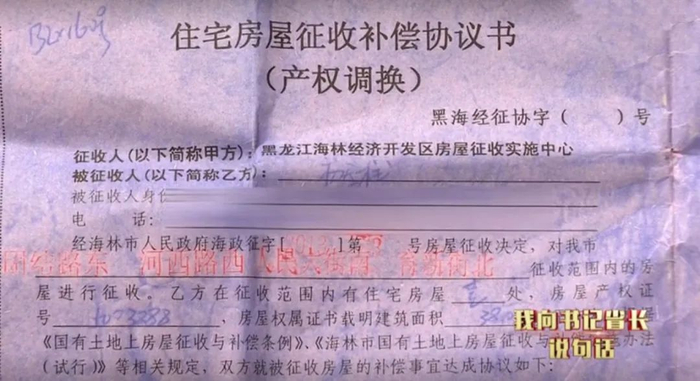 住宅房屋征收补偿协议书
（产权调换）
黑海经征协字（ ）号
征收人(以下简称甲方)：黑龙江海林经济开发区房屋征收实施中心
被征收人(以下简称乙方)：
被征收人身份
电 话：
经海林市人民政府海政征字[ ]第 号房屋征收决定，对我市
团结路东、河西路西、人民大街南、 街北 征收范围内的房
屋进行征收。乙方在征收范围内有住宅房屋 壹 处，房屋产权证
号 ，房屋权属证书载明建筑面积
《国有土地上房屋征收与补偿条例》、《海林市国有土地上房屋征收与 办法
(试行)》等相关规定，双方就被征收房屋的补偿事宜达成协议如下：
我向书记省长
说句话